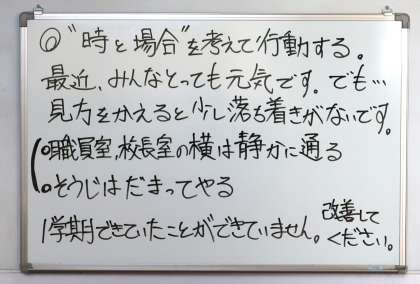 ◎"時と場合"を考えて行動する。
最近、みんなとっても元気です。でも…
見方をかえると少し落ち着きがないです。
○職員室,校長室の横は静かに通る
○そうじはだまってやる
1学期できていたことができていません。
改善して
ください。